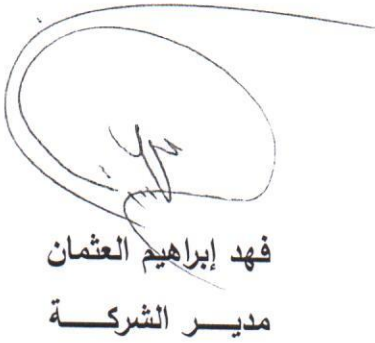 فهد إبراهيم العثمان
مديـــر الشركـــة